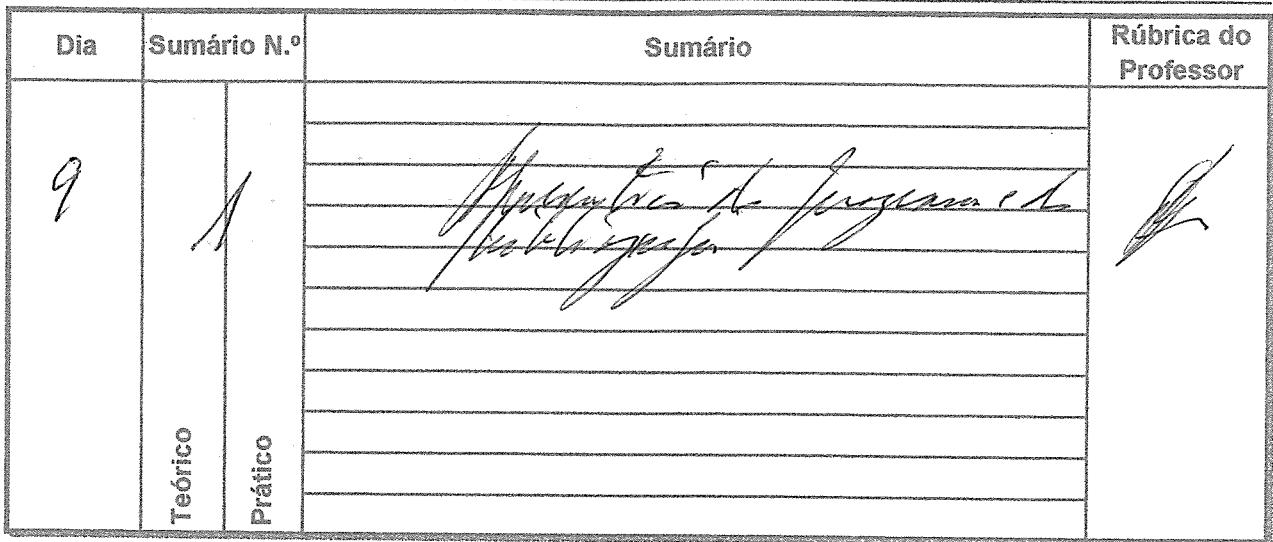 Dia Sumário N.º Sumário Rúbrica do Professor
9 1 Apresentação do programa e da
bibliografia
Teórico Prático